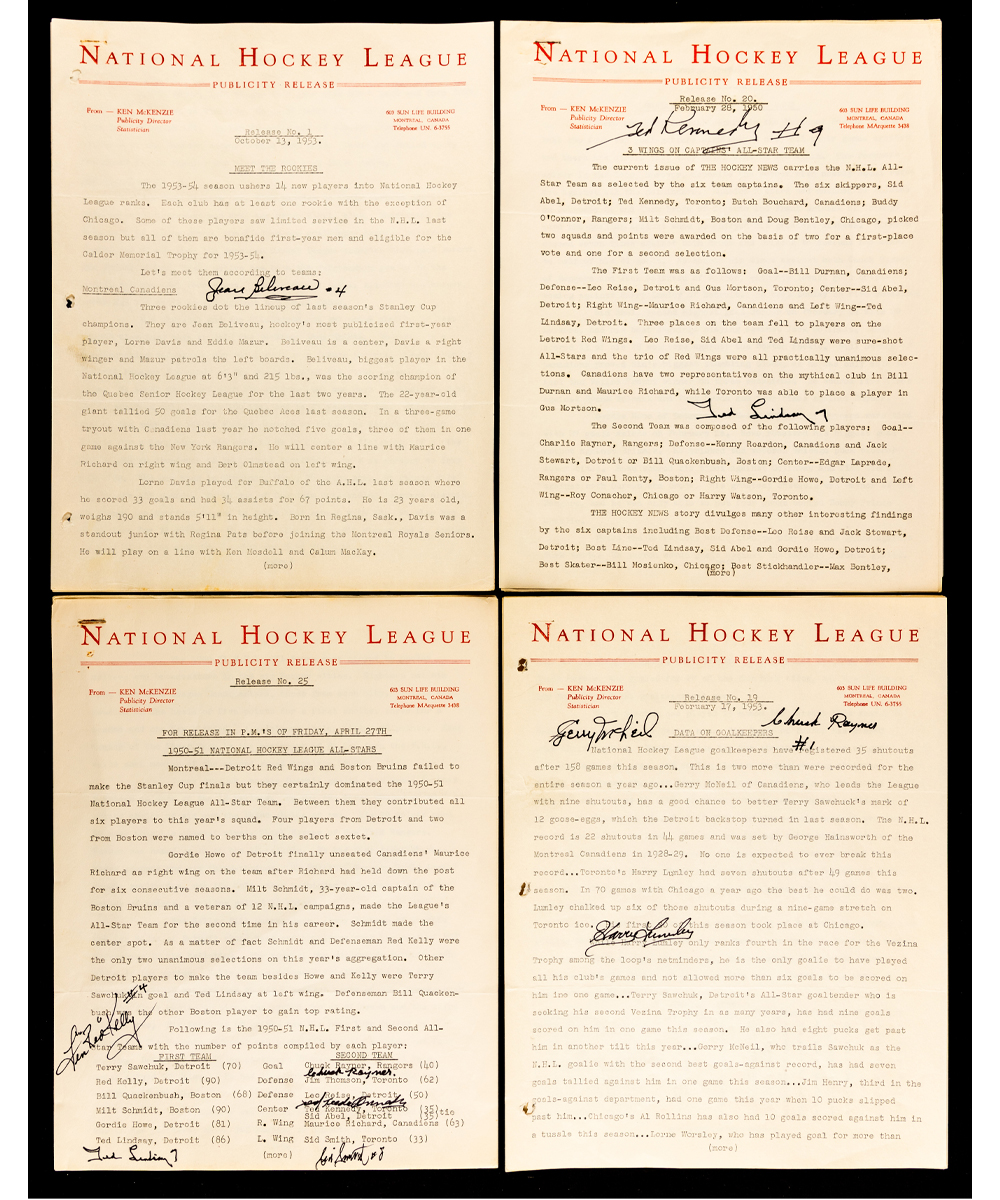 NATIONAL HOCKEY LEAGUE
PUBLICITY RELEASE
From — KEN McKENZIE
Publicity Director
Statistician
603 SUN LIFE BUILDING
MONTREAL, CANADA
Telephone UN. 6-3755
Release No. 1
October 13, 1953.
MEET THE ROOKIES
The 1953-54 season ushers 14 new players into National Hockey
League ranks. Each club has at least one rookie with the exception of
Chicago. Some of these players saw limited service in the N.H.L. last
season but all of them are bonafide first-year men and eligible for the
Calder Memorial Trophy for 1953-54.
Let's meet them according to teams:
Montreal Canadiens
Jean Beliveau #4
Three rookies dot the lineup of last season's Stanley Cup
champions. They are Jean Beliveau, hockey's most publicized first-year
player, Lorne Davis and Eddie Mazur. Beliveau is a center, Davis a right
winger and Mazur patrols the left boards. Beliveau, biggest player in the
National Hockey League at 6'3" and 215 lbs., was the scoring champion of
the Quebec Senior Hockey League for the last two years. The 22-year-old
giant tallied 50 goals for the Quebec Aces last season. In a three-game
tryout with Canadiens last year he notched five goals, three of them in one
game against the New York Rangers. He will center a line with Maurice
Richard on right wing and Bert Olmstead on left wing.
Lorne Davis played for Buffalo of the A.H.L. last season where
he scored 33 goals and had 34 assists for 67 points. He is 23 years old,
weighs 190 and stands 5'11" in height. Born in Regina, Sask., Davis was a
standout junior with Regina Pats before joining the Montreal Royals Seniors.
He will play on a line with Ken Mosdell and Calum MacKay.
(more)
NATIONAL HOCKEY LEAGUE
PUBLICITY RELEASE
Release No. 20.
February 28, 1950
From — KEN McKENZIE
Publicity Director
Statistician
603 SUN LIFE BUILDING
MONTREAL, CANADA
Telephone MArquette 3438
Ted Kennedy #9
3 WINGS ON CAPTAINS' ALL-STAR TEAM
The current issue of THE HOCKEY NEWS carries the N.H.L. All-
Star Team as selected by the six team captains. The six skippers, Sid
Abel, Detroit; Ted Kennedy, Toronto; Butch Bouchard, Canadiens; Buddy
O'Connor, Rangers; Milt Schmidt, Boston and Doug Bentley, Chicago, picked
two squads and points were awarded on the basis of two for a first-place
vote and one for a second selection.
The First Team was as follows: Goal--Bill Durnan, Canadiens;
Defense--Leo Reise, Detroit and Gus Mortson, Toronto; Center--Sid Abel,
Detroit; Right Wing--Maurice Richard, Canadiens and Left Wing--Ted
Lindsay, Detroit. Three places on the team fell to players on the
Detroit Red Wings. Leo Reise, Sid Abel and Ted Lindsay were sure-shot
All-Stars and the trio of Red Wings were all practically unanimous selec-
tions. Canadiens have two representatives on the mythical club in Bill
Durnan and Maurice Richard, while Toronto was able to place a player in
Gus Mortson.
Ted Lindsay 7
The Second Team was composed of the following players: Goal--
Charlie Rayner, Rangers; Defense--Kenny Reardon, Canadiens and Jack
Stewart, Detroit or Bill Quackenbush, Boston; Center--Edgar Laprade,
Rangers or Paul Ronty, Boston; Right Wing--Gordie Howe, Detroit and Left
Wing--Roy Conacher, Chicago or Harry Watson, Toronto.
THE HOCKEY NEWS story divulges many other interesting findings
by the six captains including Best Defense--Leo Reise and Jack Stewart,
Detroit; Best Line--Ted Lindsay, Sid Abel and Gordie Howe, Detroit;
Best Skater--Bill Mosienko, Chicago; Best Stickhandler--Max Bentley,
(more)
NATIONAL HOCKEY LEAGUE
PUBLICITY RELEASE
Release No. 25
From — KEN McKENZIE
Publicity Director
Statistician
603 SUN LIFE BUILDING
MONTREAL, CANADA
Telephone MArquette 3438
FOR RELEASE IN P.M.'S OF FRIDAY, APRIL 27TH
1950-51 NATIONAL HOCKEY LEAGUE ALL-STARS
Montreal---Detroit Red Wings and Boston Bruins failed to
make the Stanley Cup finals but they certainly dominated the 1950-51
National Hockey League All-Star Team. Between them they contributed all
six players to this year's squad. Four players from Detroit and two
from Boston were named to berths on the select sextet.
Gordie Howe of Detroit finally unseated Canadiens' Maurice
Richard as right wing on the team after Richard had held down the post
for six consecutive seasons. Milt Schmidt, 33-year-old captain of the
Boston Bruins and a veteran of 12 N.H.L. campaigns, made the League's
All-Star Team for the second time in his career. Schmidt made the
center spot. As a matter of fact Schmidt and Defenseman Red Kelly were
the only two unanimous selections on this year's aggregation. Other
Detroit players to make the team besides Howe and Kelly were Terry
Sawchuk in goal and Ted Lindsay at left wing. Defenseman Bill Quacken-
bush was the other Boston player to gain top rating.
"Red" Kelly #4
Following is the 1950-51 N.H.L. First and Second All-
Star Teams with the number of points compiled by each player:
FIRST TEAM SECOND TEAM
Terry Sawchuk, Detroit (70) Goal Chuck Rayner, Rangers (40)
Chuck Rayner
Red Kelly, Detroit (90) Defense Jim Thomson, Toronto (62)
Bill Quackenbush, Boston (68) Defense Leo Reise, Detroit (50)
Milt Schmidt, Boston (90) Center Ted Kennedy, Toronto (35)
Sid Abel, Detroit (35) tie
Gordie Howe, Detroit (81) R. Wing Maurice Richard, Canadiens (63)
Ted Lindsay, Detroit (86) L. Wing Sid Smith, Toronto (33)
Ted Lindsay 7
(more)
NATIONAL HOCKEY LEAGUE
PUBLICITY RELEASE
From — KEN McKENZIE
Publicity Director
Statistician
603 SUN LIFE BUILDING
MONTREAL, CANADA
Telephone UN. 6-3755
Release No. 19
February 17, 1953.
Gerry McNeil
Chuck Rayner #1
DATA ON GOALKEEPERS
National Hockey League goalkeepers have registered 35 shutouts
after 158 games this season. This is two more than were recorded for the
entire season a year ago...Gerry McNeil of Canadiens, who leads the League
with nine shutouts, has a good chance to better Terry Sawchuck's mark of
12 goose-eggs, which the Detroit backstop turned in last season. The N.H.L.
record is 22 shutouts in 44 games and was set by George Hainsworth of the
Montreal Canadiens in 1928-29. No one is expected to ever break this
record...Toronto's Harry Lumley had seven shutouts after 49 games this
season. In 70 games with Chicago a year ago the best he could do was two.
Lumley chalked up six of those shutouts during a nine-game stretch on
Toronto ice. first of this season took place at Chicago.
Harry Lumley
Harry Lumley only ranks fourth in the race for the Vezina
Trophy among the loop's netminders, he is the only goalie to have played
all his club's games and not allowed more than six goals to be scored on
him ine one game...Terry Sawchuk, Detroit's All-Star goaltender who is
seeking his second Vezina Trophy in as many years, has had nine goals
scored on him in one game this season. He also had eight pucks get past
him in another tilt this year...Gerry McNeil, who trails Sawchuk as the
N.H.L. goalie with the second best goals-against record, has had seven
goals tallied against him in one game this season...Jim Henry, third in the
goals-against department, had one game this year when 10 pucks slipped
past him...Chicago's Al Rollins has also had 10 goals scored against him in
a tussle this season...Lorne Worsley, who has played goal for more than
(more)